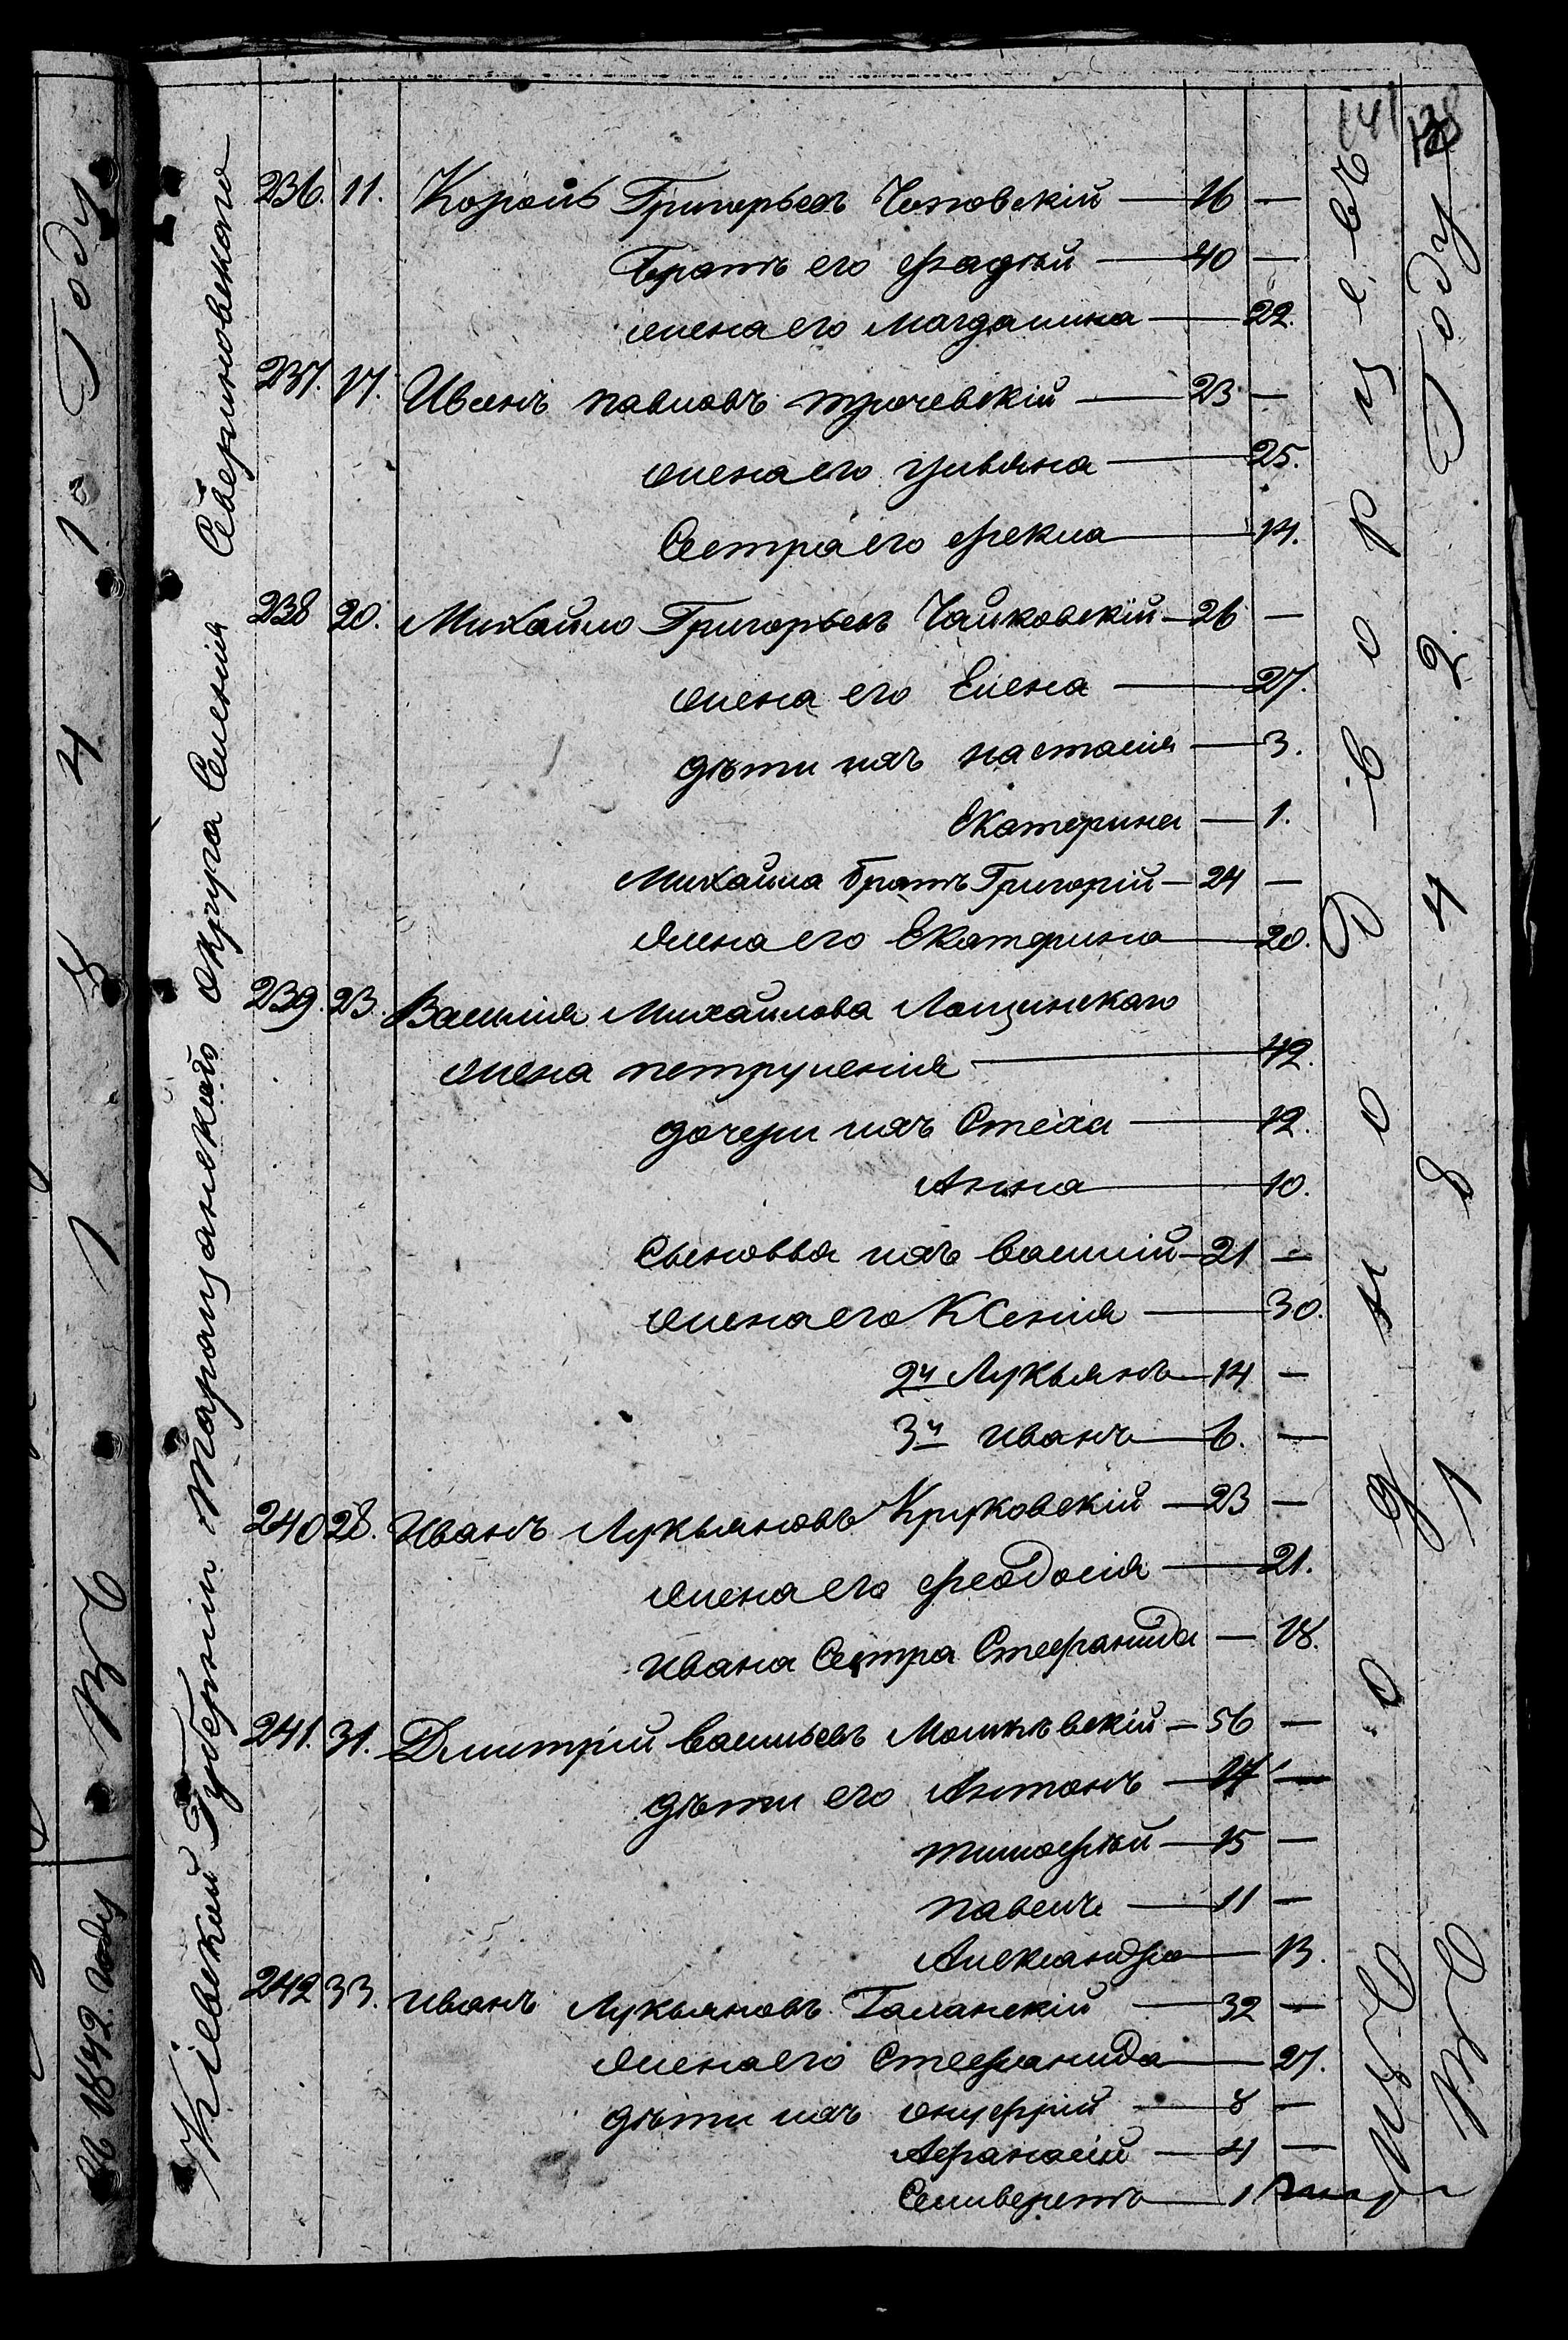 141 138
236. 11. Король Григорьевъ Чеповскій — 16 —
Братъ его Фадѣй — 40 —
жена его Магдалина — 22.
237. 17. Иванъ Павловъ Трочевскій — 23 —
жена его Ульяна — 25.
Сестра его Фекла — 14.
238 20. Михайло Григорьевъ Чайковскій — 26 —
жена его Елена — 27.
дѣти ихъ Настасія — 3.
Екатерина — 1.
Михайла братъ Григорій — 24 —
жена его Екатерина — 20.
239. 23. Василія Михайлова Лощинскаго
жена Петрунелія — 42.
дочери ихъ Стеха — 12.
Анна — 10.
Сыновья ихъ Василій — 21 —
жена его Ксенія — 30.
2й Лукьянъ — 14 —
3й Иванъ — 6. —
240 28. Иванъ Лукьяновъ Круковскій — 23 —
жена его Феодосія — 21.
Ивана Сестра Стефанида — 18.
241. 31. Дмитрій Васильевъ — 56 —
дѣти его Антонъ — 17 —
Тимофѣй — 15 —
Павелъ — 11 —
Александра — 13.
242 33. Иванъ Лукьяновъ Галанскій — 32 —
жена его Стефанида — 27.
дѣти ихъ Онуфрій — 8 —
Афанасій — 4 —
Селиверстъ — 1
Кіевской Губерніи Таращанскаго округа Селенія Севериновскаго
Изъ Однодворцевъ
Въ 1842 Году
Въ 1841 Году
въ 1842 году